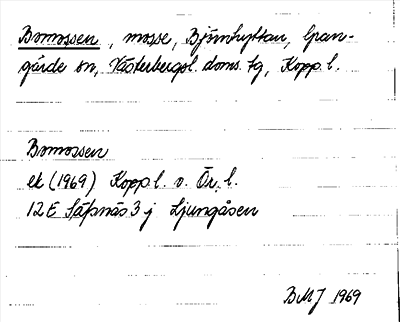 Bomossen, mosse, Björnhyttan, Gran-
gärde sn, Västerbergsl. doms. tg, Kopp. l.
Bomossen
ek (1969) Kopp l. v. Ör. l.
12 E Säfsnäs 3 j Ljungåsen
BMJ 1969